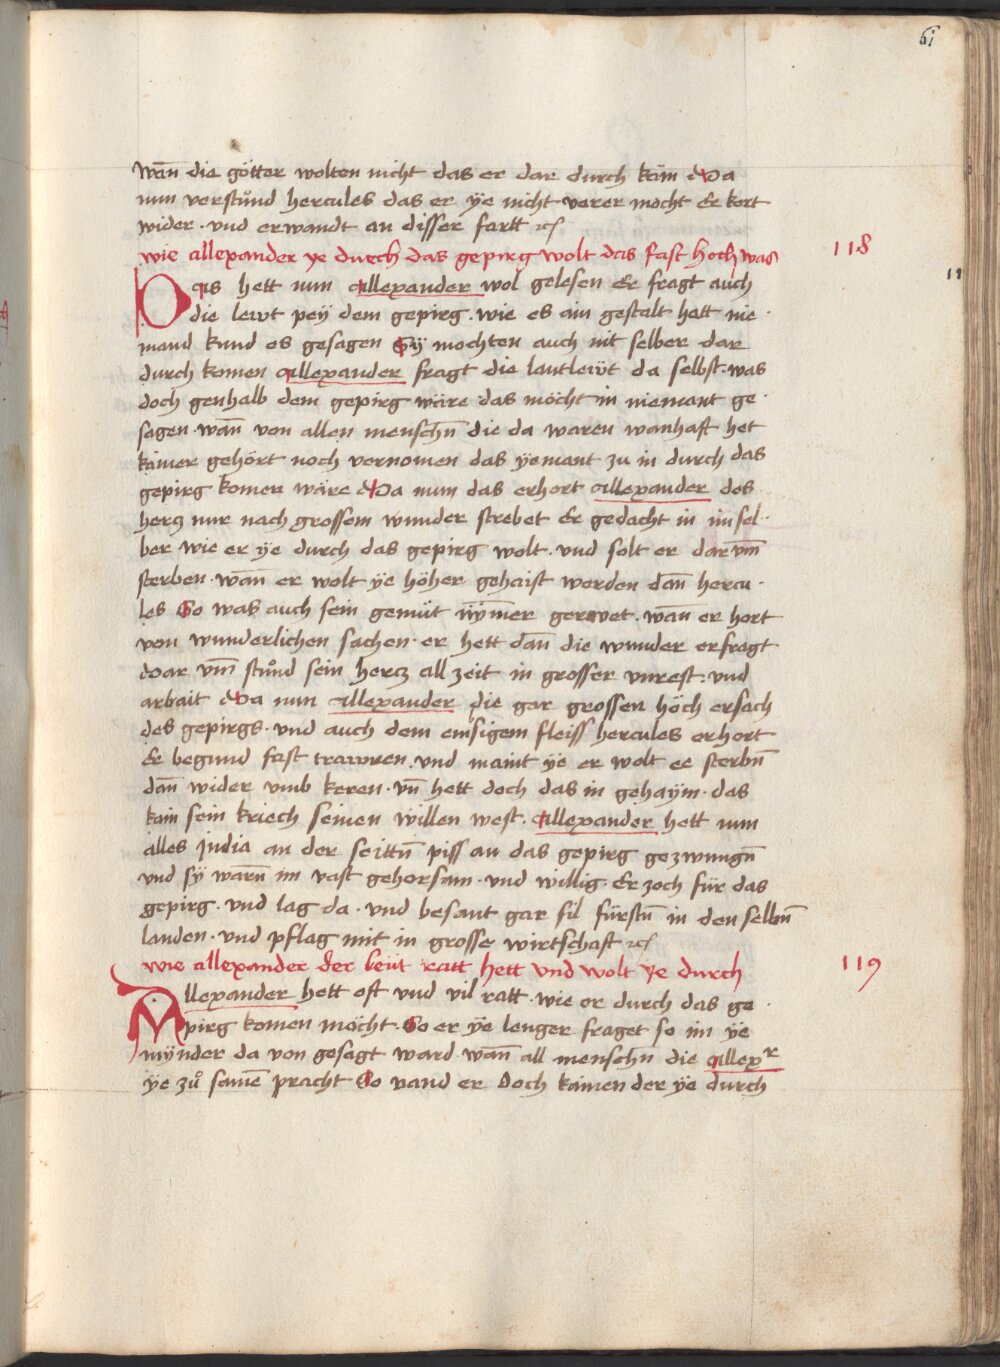 61
wañ die götter wolten nicht das er dar durch käm Da
nun verstůnd hercules das er ÿe nicht verer mocht Er kort
wider · und erwandt an disser fartt ꝛcͭ
wie allexander ye durch das gepirg wolt das fast hoch was
118
Das hett nun Allexander wol gelesen Er fragt auch
die lewt peÿ dem gepirg · wie es ain gestalt hett nie ·
mand kund es gesagen Sÿ mochten auch nit selber dar
durch komen Allexander fragt die lantlewt da selbst · was
doch genhalb dem gepirg wäre das möcht in niemant ge ·
sagen · wañ von allen menschñ die da waren wanhaft het
kainer gehört noch vernomen das ÿemant zu in durch das
gepirg komen wäre Da nun das erhort Allexander des
hercz nur nach grossem wunder strebet Er gedacht in im sel ·
ber wie er ÿe durch das gepirg wolt · und solt er dar um̄
sterben · wañ er wolt ÿe höher gehaist werden dañ hercu ·
les So was auch sein gemüt nÿm̄er gerwet · wañ er hort
von wunderlichen sachen · er hett dañ die wunder erfragt
Dar um̄ stůnd sein hercz all zeit in grosser unrest · und
arbait Da nun Allexander die gar grossen höch ersach
des gepirgs · und auch dem emsigem fleiss hercules erhort
Er begund fast trawren · und maint ÿe er wolt ee sterbñ
dañ wider umb keren · uñ hett doch das in gehaÿm · das
kain sein kriech seinen willen west · Allexander hett nun
alles jndia an der seittñ piss an das gepirg gezwungñ
und sÿ warñ im vast gehorsam · und willig · Er zoch für das
gepirg · und lag da · und besant gar fil fürstñ in den selbñ
landen · und pflag mit in grosse wirtschaft ꝛcͭ
wie allexander der leüt ratt hett und wolt ye durch
119
Allexander hett oft und vil ratt · wie er durch das ge ·
pirg komen möcht · So er ÿe lenger fraget so im ÿe
mÿnder da von gesagt ward · wañ all menschñ die Allexʳ
ÿe zů samē pracht So vand er doch kainen der ÿe durch